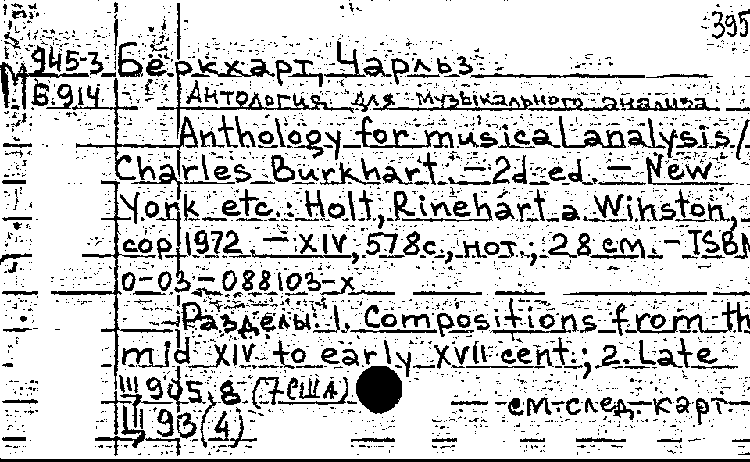 395
М 945-3 Беркхарт, Чарльз
Б.914 Антология для музыкального анализа.
Anthology for musical analysis /
Charles Burkhart. – 2d ed. – New
York etc.: Holt, Rinehart a. Winston,
cop 1972. – XIV, 578 с., нот.; 28 см. – ISBN
0-03-088103-x
Разделы: 1. Compositions from th
mid XIV. to early XVII cent.; 2. Late
Щ905.8 (7США)
Щ93(4) см.след. карт.